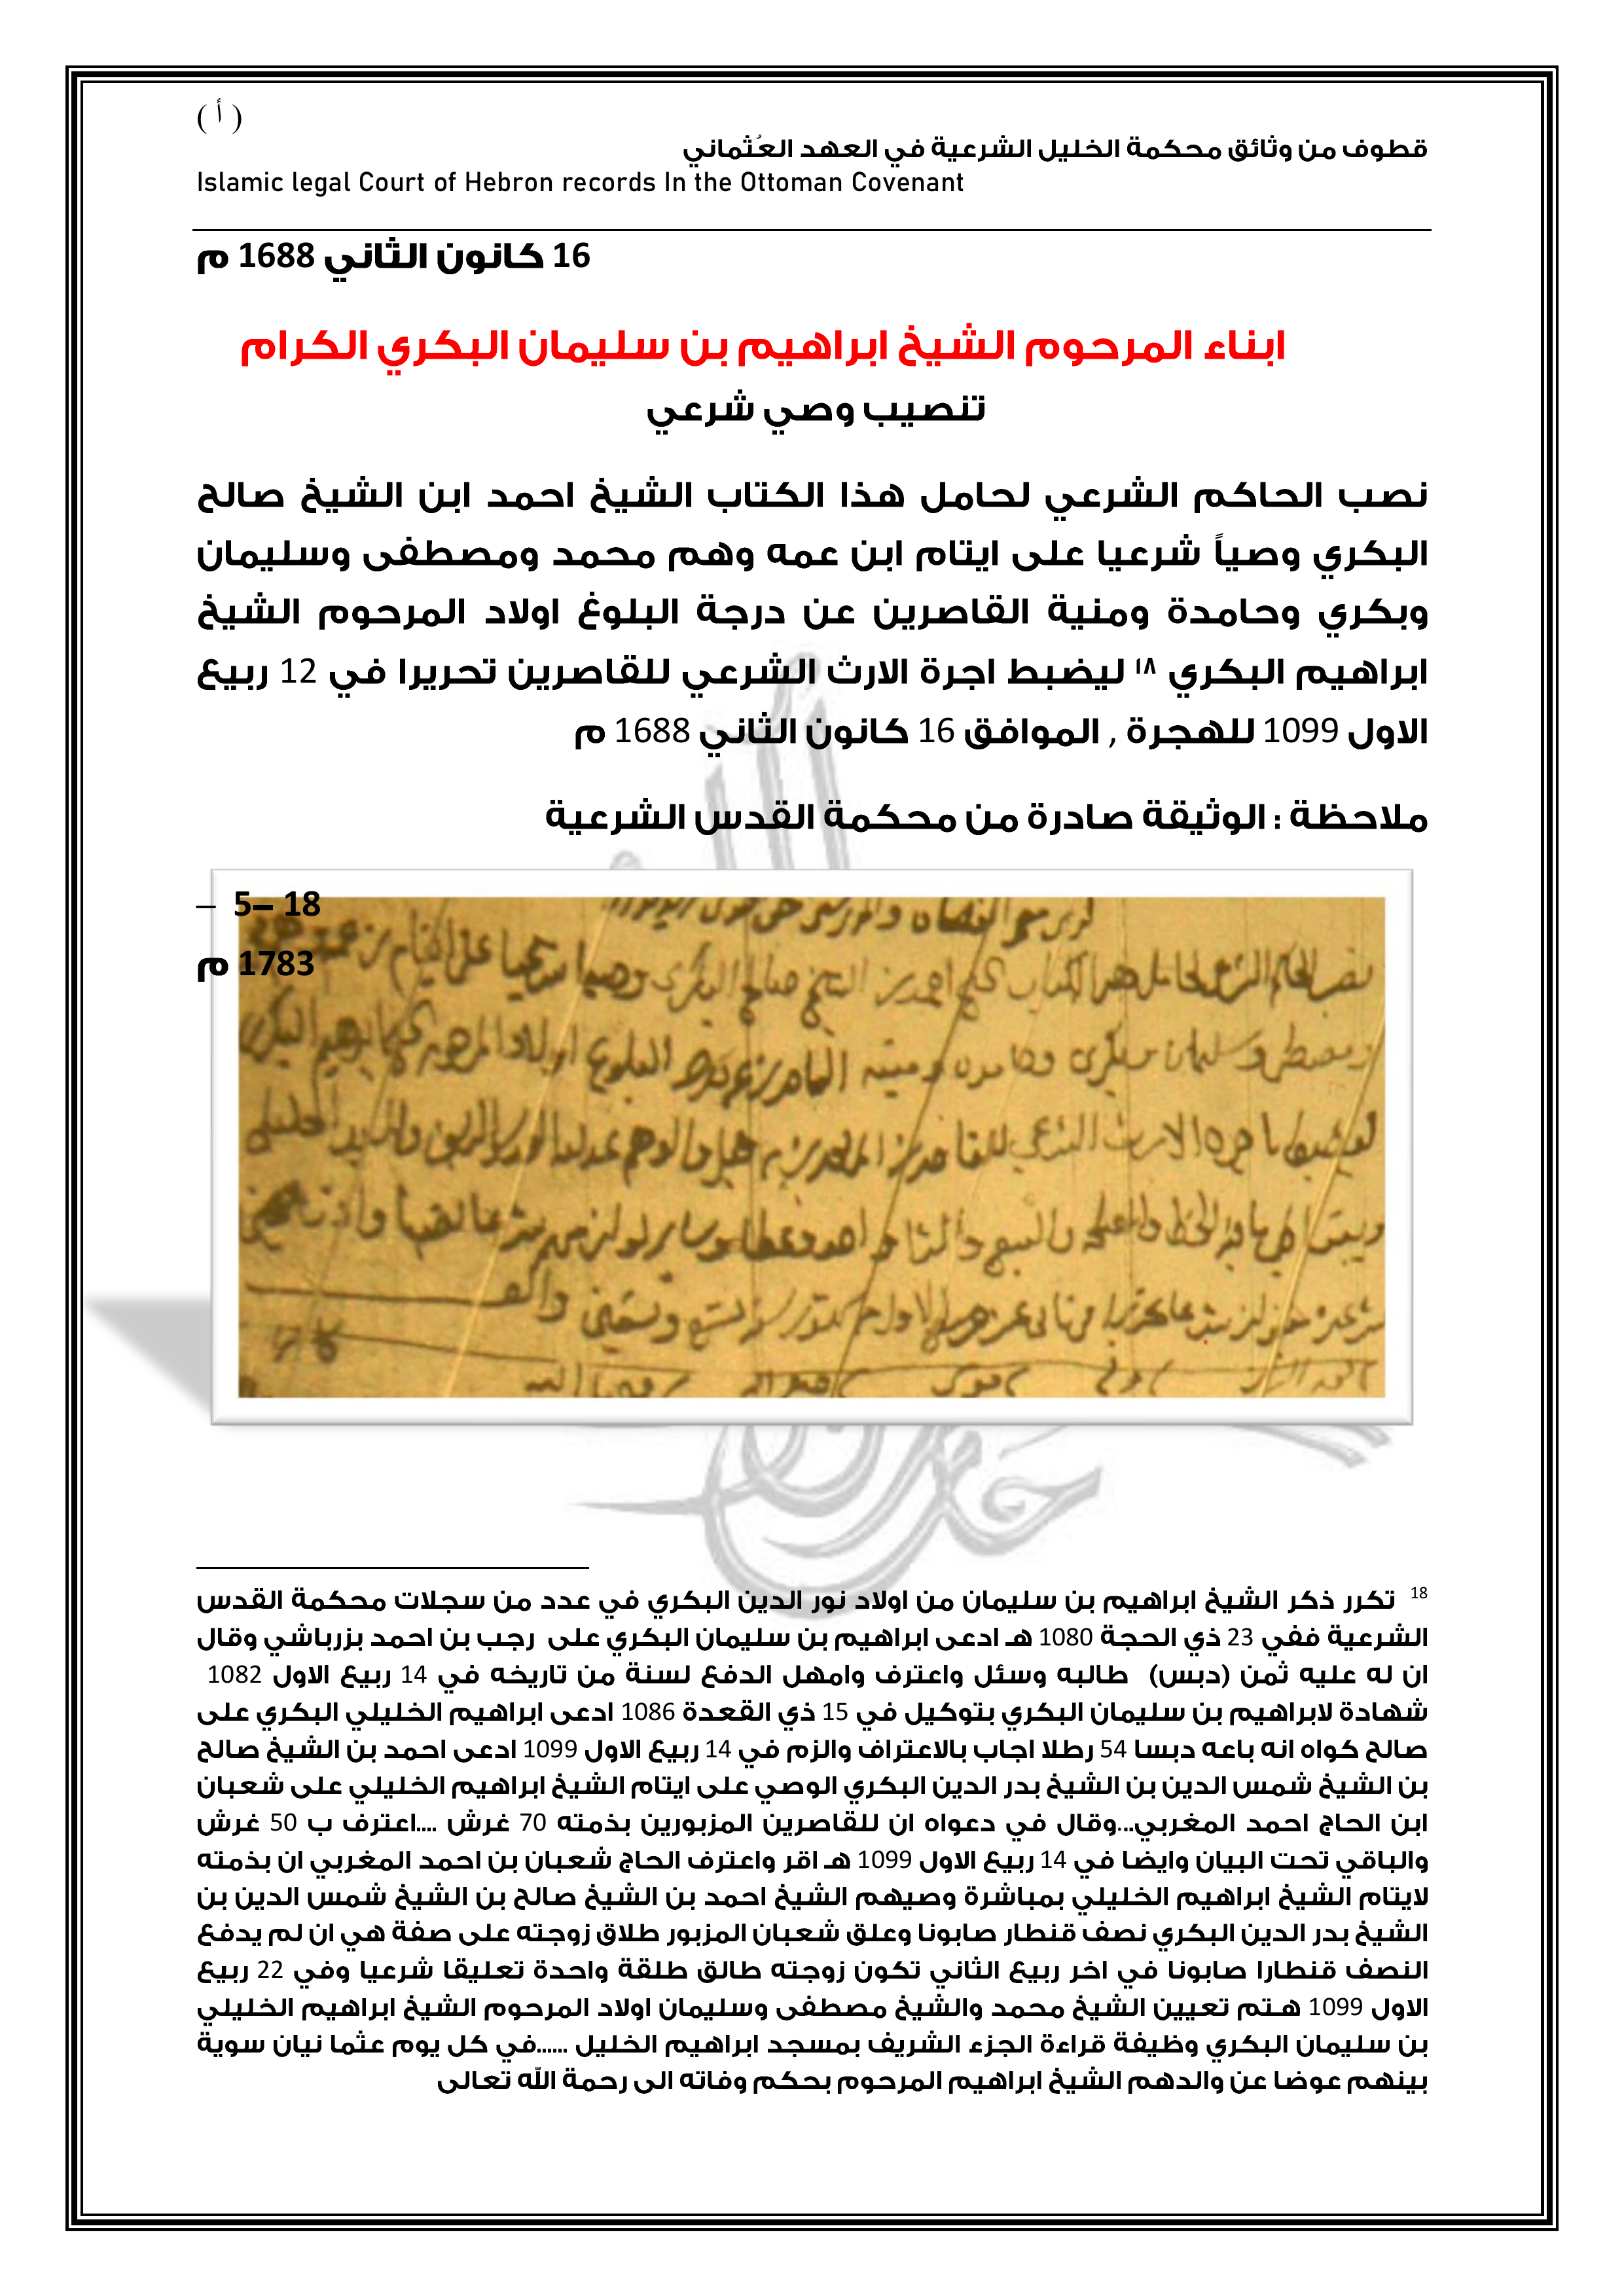 ( أ )
قطوف من وثائق محكمة الخليل الشرعية في العهد العُثماني
Islamic legal Court of Hebron records In the Ottoman Covenant
16 كانون الثاني 1688 م
ابناء المرحوم الشيخ ابراهيم بن سليمان البكري الكرام
تنصيب وصي شرعي
نصب الحاكم الشرعي لحامل هذا الكتاب الشيخ احمد ابن الشيخ صالح
البكري وصياً شرعيا على ايتام ابن عمه وهم محمد ومصطفى وسليمان
وبكري وحامدة ومنية القاصرين عن درجة البلوغ اولاد المرحوم الشيخ
ابراهيم البكري ١٨ ليضبط اجرة الارث الشرعي للقاصرين تحريرا في 12 ربيع
الاول 1099 للهجرة , الموافق 16 كانون الثاني 1688 م
ملاحظة : الوثيقة صادرة من محكمة القدس الشرعية
18 –5 –
1783 م
نصب الحاكم الشرعي لحامل هذا الكتاب
18 تكرر ذكر الشيخ ابراهيم بن سليمان من اولاد نور الدين البكري في عدد من سجلات محكمة القدس
الشرعية ففي 23 ذي الحجة 1080 هـ ادعى ابراهيم بن سليمان البكري على رجب بن احمد بزرباشي وقال
ان له عليه ثمن (دبس) طالبه وسئل واعترف وامهل الدفع لسنة من تاريخه في 14 ربيع الاول 1082
شهادة لابراهيم بن سليمان البكري بتوكيل في 15 ذي القعدة 1086 ادعى ابراهيم الخليلي البكري على
صالح كواه انه باعه دبسا 54 رطلا اجاب بالاعتراف والزم في 14 ربيع الاول 1099 ادعى احمد بن الشيخ صالح
بن الشيخ شمس الدين بن الشيخ بدر الدين البكري الوصي على ايتام الشيخ ابراهيم الخليلي على شعبان
ابن الحاج احمد المغربي...وقال في دعواه ان للقاصرين المزبورين بذمته 70 غرش ....اعترف ب 50 غرش
والباقي تحت البيان وايضا في 14 ربيع الاول 1099 هـ اقر واعترف الحاج شعبان بن احمد المغربي ان بذمته
لايتام الشيخ ابراهيم الخليلي بمباشرة وصيهم الشيخ احمد بن الشيخ صالح بن الشيخ شمس الدين بن
الشيخ بدر الدين البكري نصف قنطار صابونا وعلق شعبان المزبور طلاق زوجته على صفة هي ان لم يدفع
النصف قنطارا صابونا في اخر ربيع الثاني تكون زوجته طالق طلقة واحدة تعليقا شرعيا وفي 22 ربيع
الاول 1099 هـتم تعيين الشيخ محمد والشيخ مصطفى وسليمان اولاد المرحوم الشيخ ابراهيم الخليلي
بن سليمان البكري وظيفة قراءة الجزء الشريف بمسجد ابراهيم الخليل ......في كل يوم عثما نيان سوية
بينهم عوضا عن والدهم الشيخ ابراهيم المرحوم بحكم وفاته الى رحمة الله تعالى